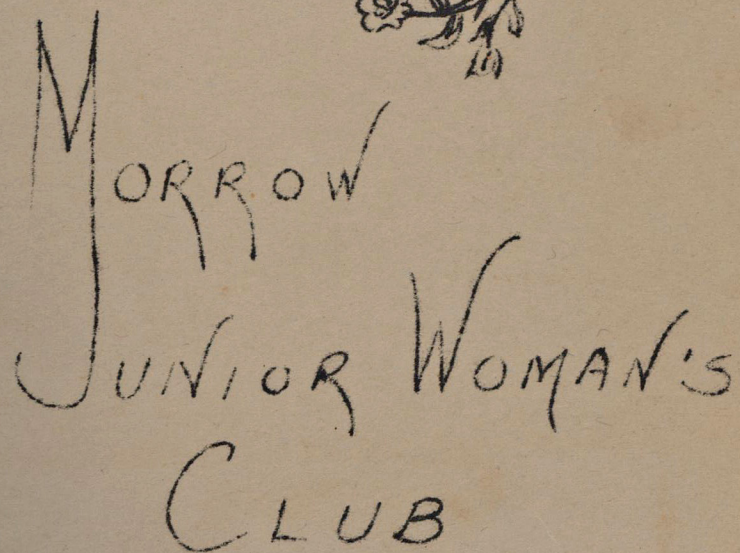 Morrow
Junior Woman's
Club